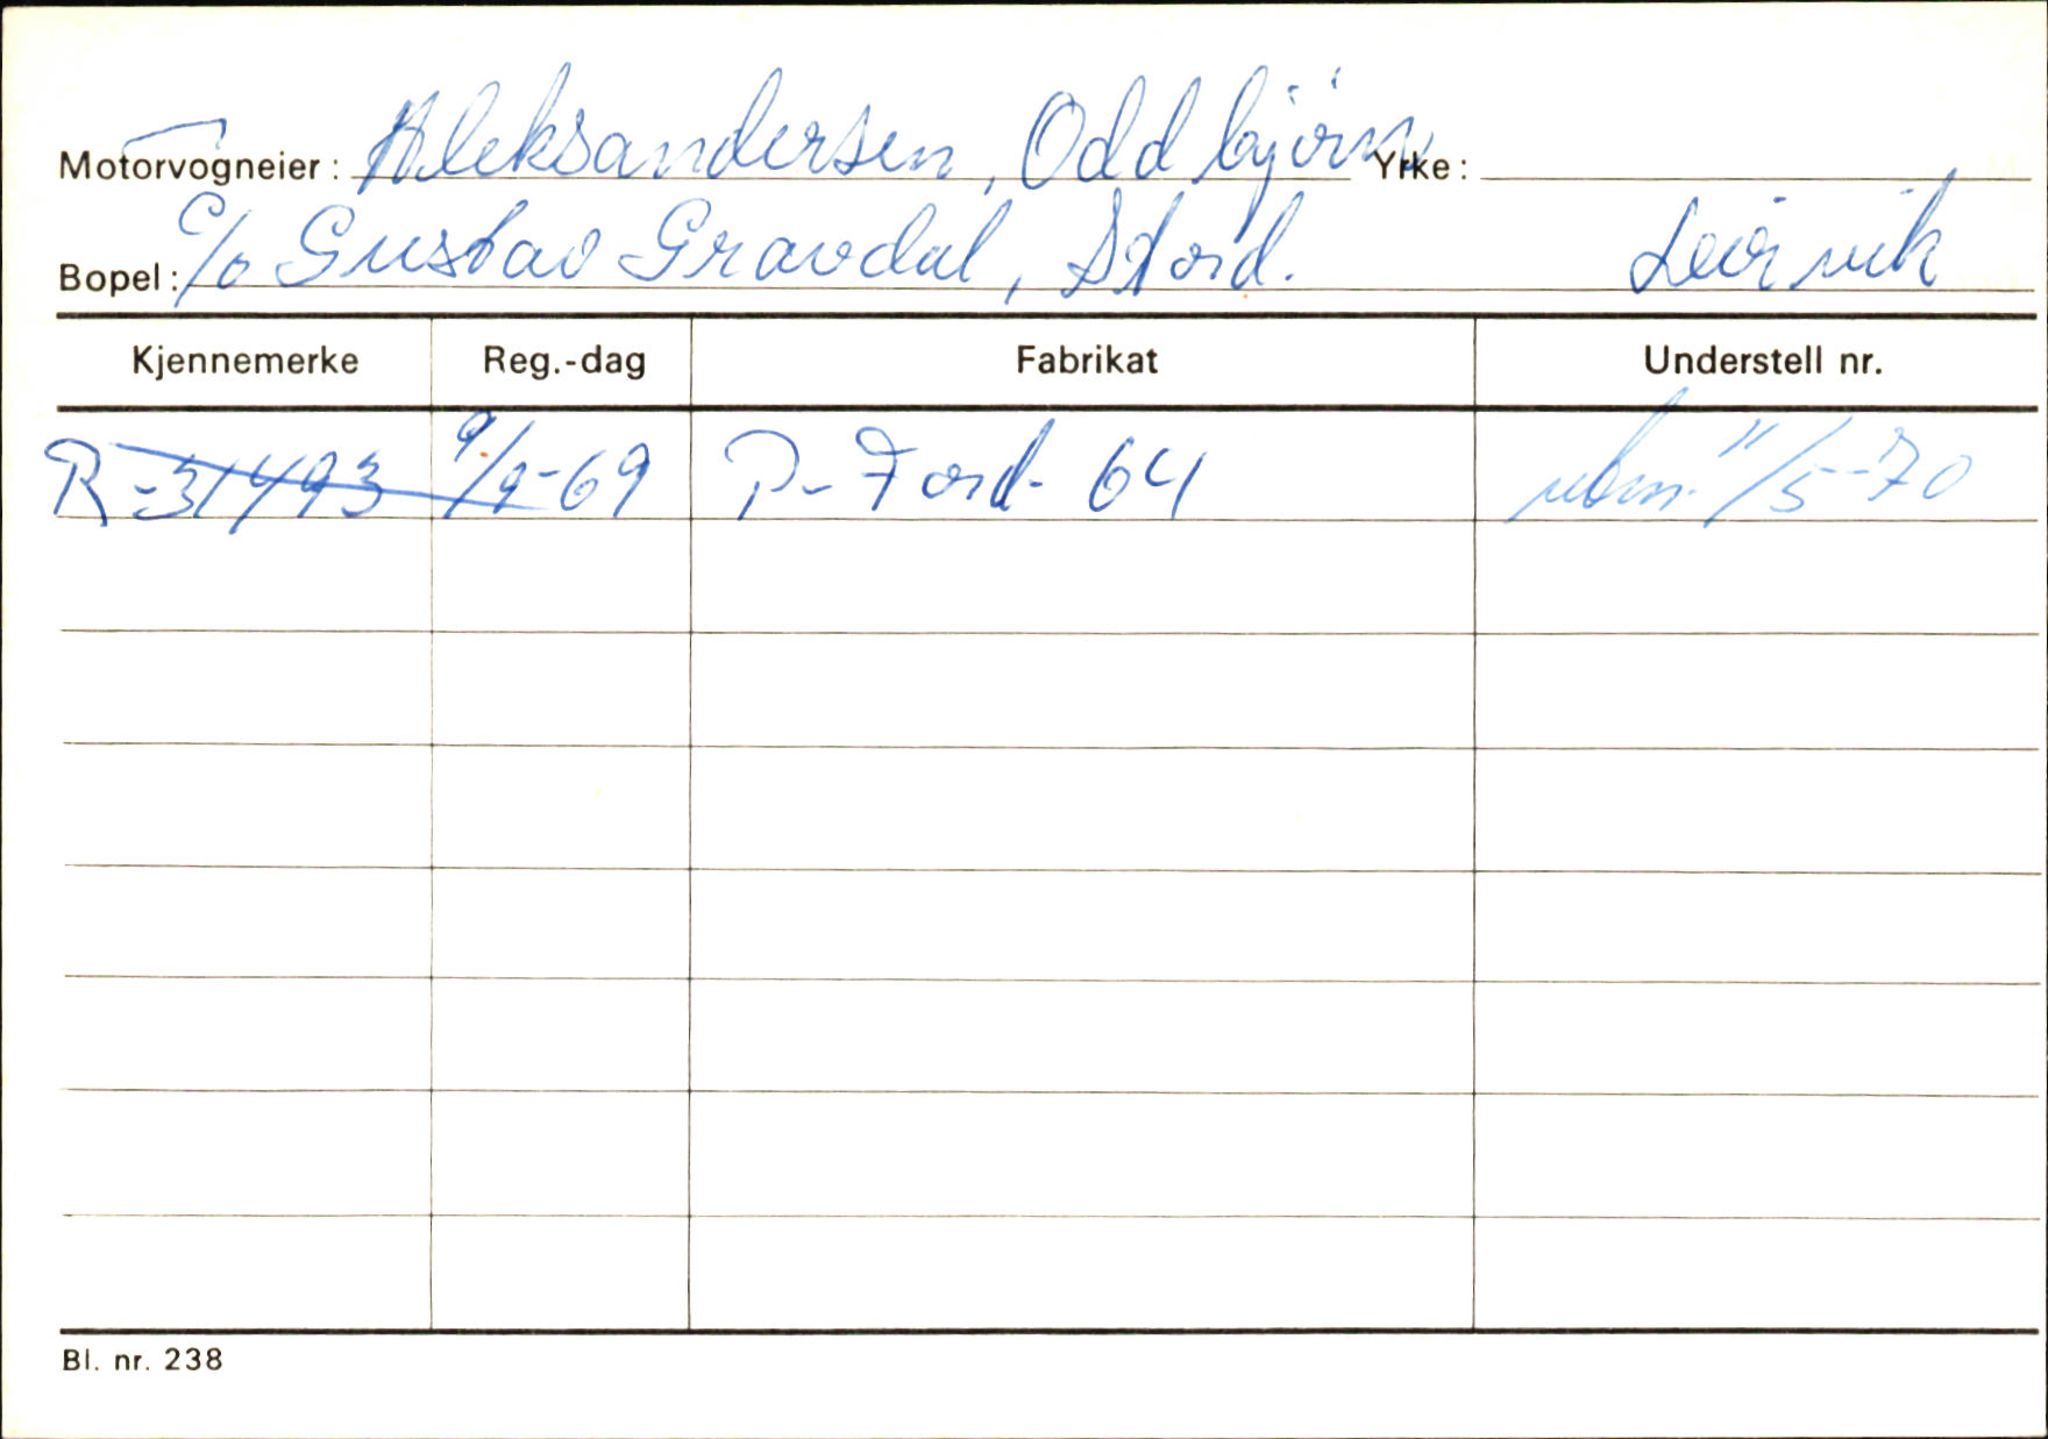 Motorvogneier: Aleksandersen, Oddbjörn Yrke:
Bopel: c/o Gustav Gravdal, Stord. Leirvik
Kjennemerke Reg.-dag Fabrikat Understell nr.
R-31493 9/9-69 P- Ford- 64 11/5-70
Bl. nr. 238